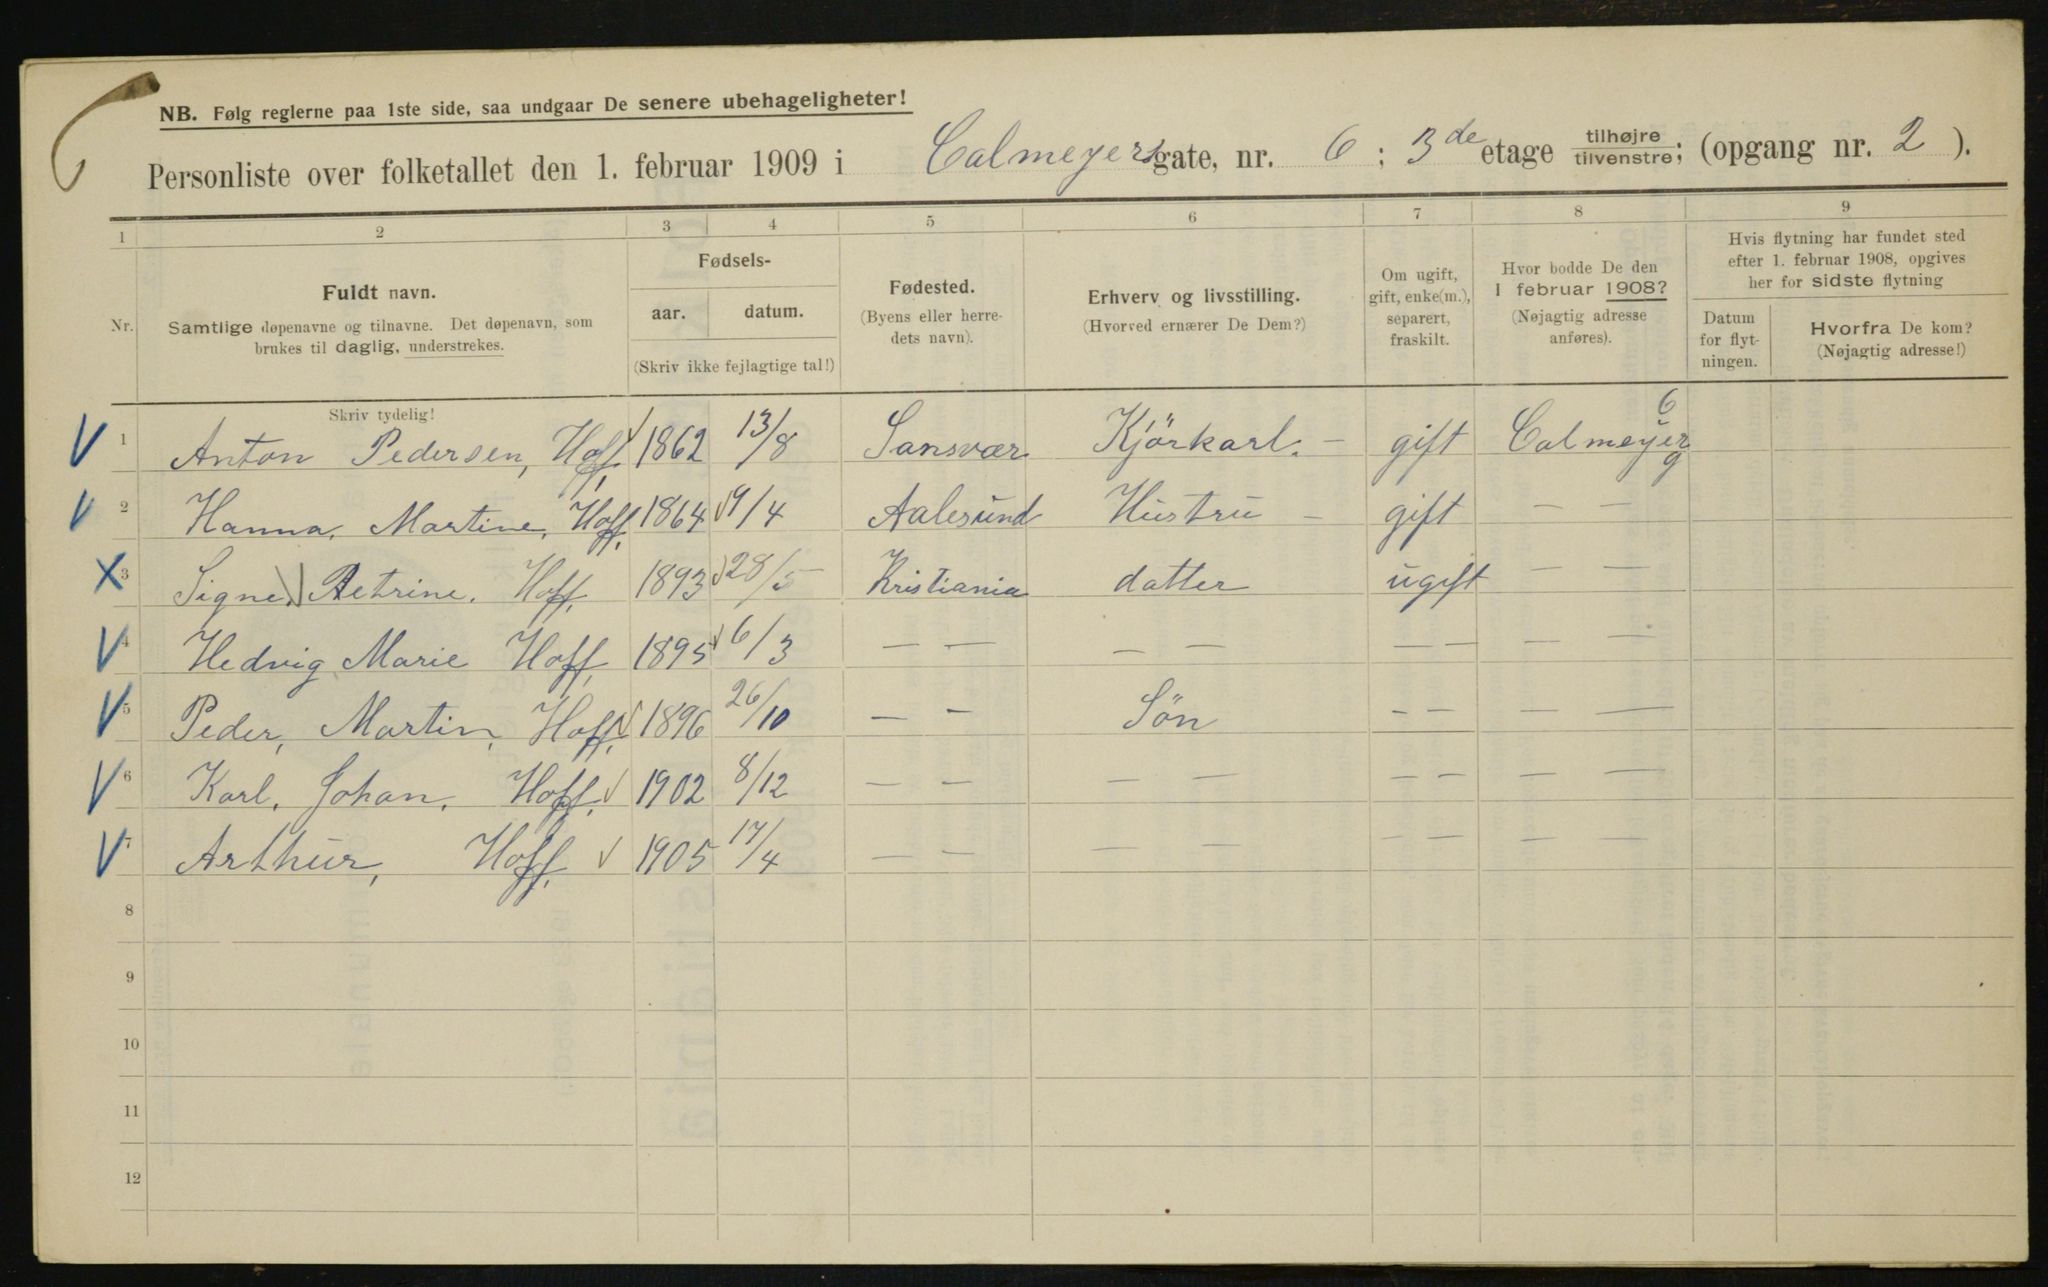 NB. Følg reglerne paa 1ste side, saa undgaar De senere ubehageligheter!
Personliste over folketallet den 1. februar 1909 i Calmeyersgate, nr. 6 ; 3de etage tilhøjre tilvenstre; (opgang nr. 2 ).
1 2 3 4 5 6 7 8 9
Nr.
Fuldt navn.
Samtlige døpenavne og tilnavne. Det døpenavn, som
brukes til daglig, understrekes.
Skriv tydelig!
Fødsels-
aar. datum.
(Skriv ikke fejlagtige tal!)
Fødested.
(Byens eller herre-
dets navn).
Erhverv og livsstilling.
(Hvorved ernærer De Dem?)
Om ugift,
gift, enke(m.),
separert,
fraskilt.
Hvor bodde De den
1 februar 1908?
(Nøjagtig adresse
anføres).
Hvis flytning har fundet sted
efter 1. februar 1908, opgives
her for sidste flytning
Datum
for flyt-
ningen.
Hvorfra De kom?
(Nøjagtig adresse!)
V 1 Anton Pedersen, Hoff, 1862 13/8 Sansvær Kjörkarl. – gift Calmeyerg 6
V 2 Hanna, Martine, Hoff, 1864 9/4 Aalesund Hustru – gift — —
X 3 Signe, Petrine. Hoff, 1893 28/5 Kristiania datter ugift — —
V 4 Hedvig Marie Hoff, 1895 6/3 — — — — — — — —
V 5 Peder, Martin, Hoff, 1896 26/10 — — Sön — — — —
V 6 Karl, Johan, Hoff, 1902 8/12 — — — — — — — —
V 7 Arthur, Hoff, 1905 17/4 — — — — — — — —
8
9
10
11
12